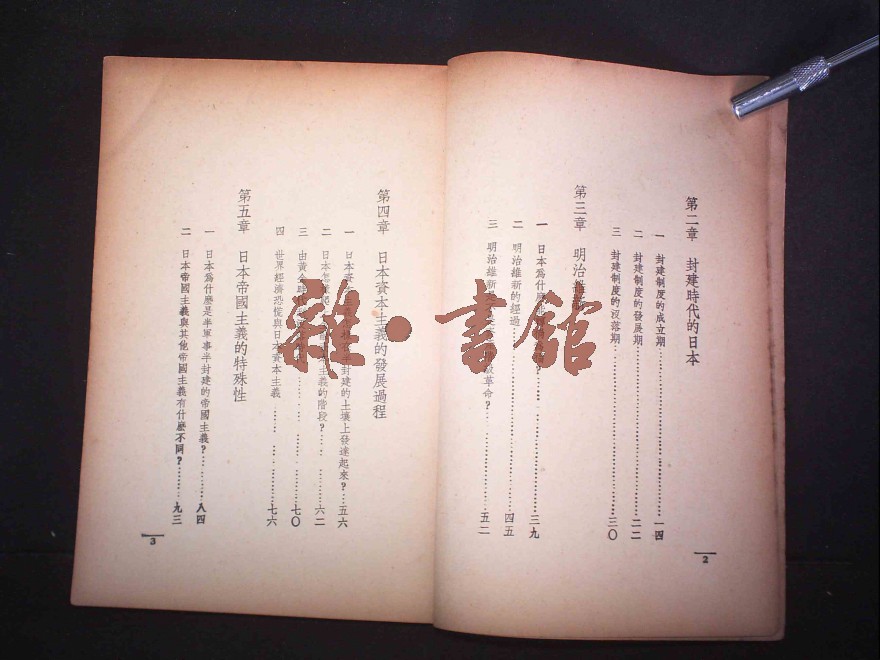 第二章 封建時代的日本
一 封建制度的成立期……一四
二 封建制度的發展期……二二
三 封建制度的沒落期……三〇
第三章 明治維新
一 日本為什麼……?……三九
二 明治維新的經過……四五
三 明治維新……革命?……五二
2
第四章 日本資本主義的發展過程
一 日本資……半封建的土壤上發達起來?……五六
二 日本怎……主義的階段?……六二
三 由黃金時代……七〇
四 世界經濟恐慌與日本資本主義……七六
第五章 日本帝國主義的特殊性
一 日本為什麼是半軍事半封建的帝國主義?……八四
二 日本帝國主義與其他帝國主義有什麼不同?……九三
3
雜·書館